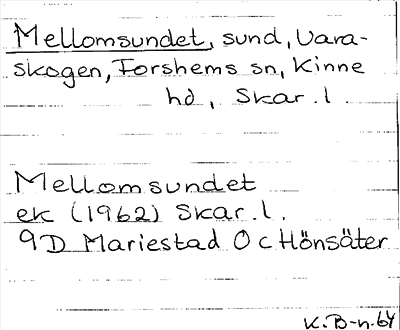 Mellomsundet, sund, Vara-
skogen, Forshems sn, Kinne
hd, Skar. l.
Mellomsundet
ek (1962) Skar. l.
9D Mariestad Oc Hönsäter
K. B-n. 64